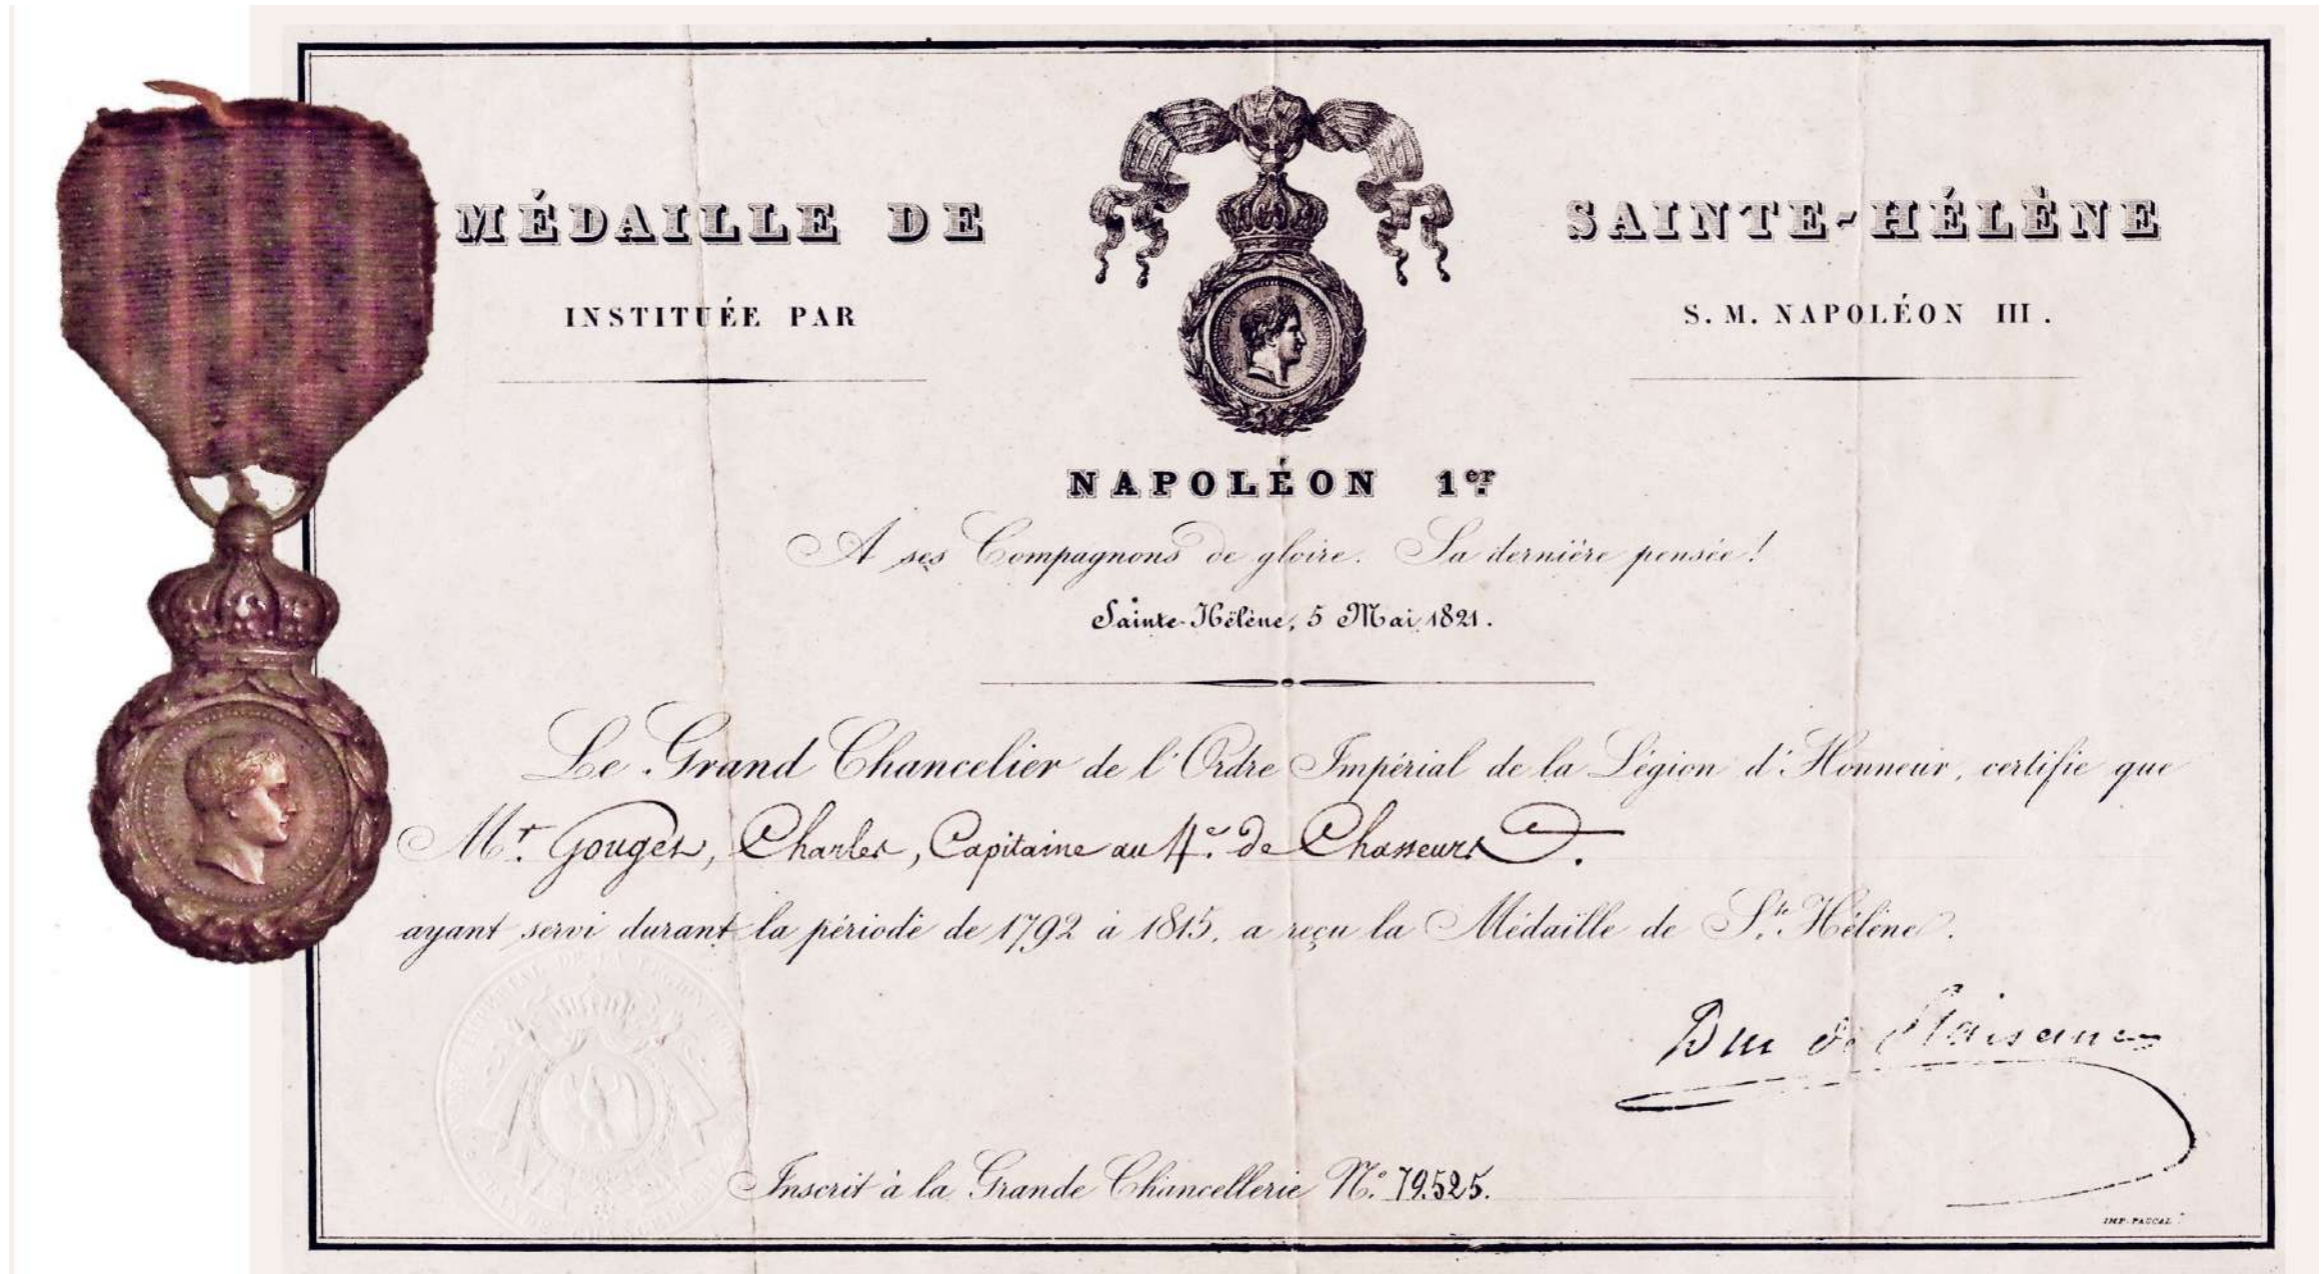 MÉDAILLE DE SAINTE-HÉLÈNE
INSTITUÉE PAR S. M. NAPOLÉON III.
NAPOLÉON 1er
A ses Compagnons de gloire. Sa dernière pensée!
Sainte-Hélène, 5 Mai 1821.
Le Grand Chancelier de l'Ordre Impérial de la Légion d'Honneur, certifie que
Mr. Gouges, Charles, Capitaine au 4e. de Chasseurs
ayant servi durant la période de 1792 à 1815, a reçu la Médaille de Ste. Hélène.
Duc de Plaisance
Inscrit à la Grande Chancellerie No. 79.525.
IMP. PASCAL